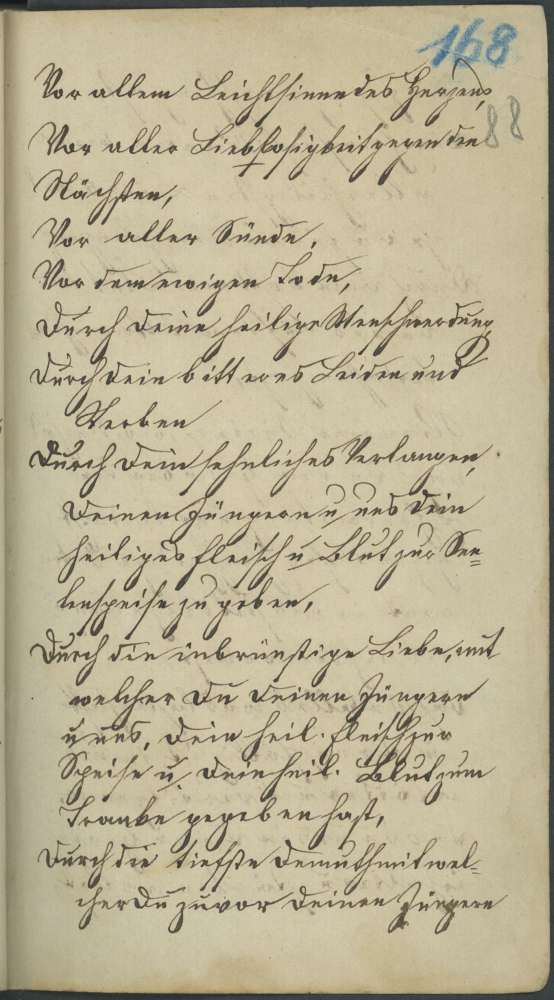 168
88
Vor allem Leichtsinne des Herzens,
Vor aller Lieblosigkeit gegen den
Nächsten,
Vor aller Sünde,
Vor dem ewigen Tode,
Durch Deine heilige Menschwerdung
Durch Dein bitteres Leiden und
Sterben
Durch Dein sehnliches Verlangen,
Deinen Jüngern u uns Dein
heiliges Fleisch u Blut zur See=
lenspeise zu geben,
Durch die inbrünstige Liebe, mit
welcher Du Deinen Jüngern
u uns, Dein heil. Fleisch zur
Speise u. Dein heil. Blut zum
Tranke gegeben hast,
Durch die tiefste Demuth mit wel=
cher Du zuvor Deinen Jüngern